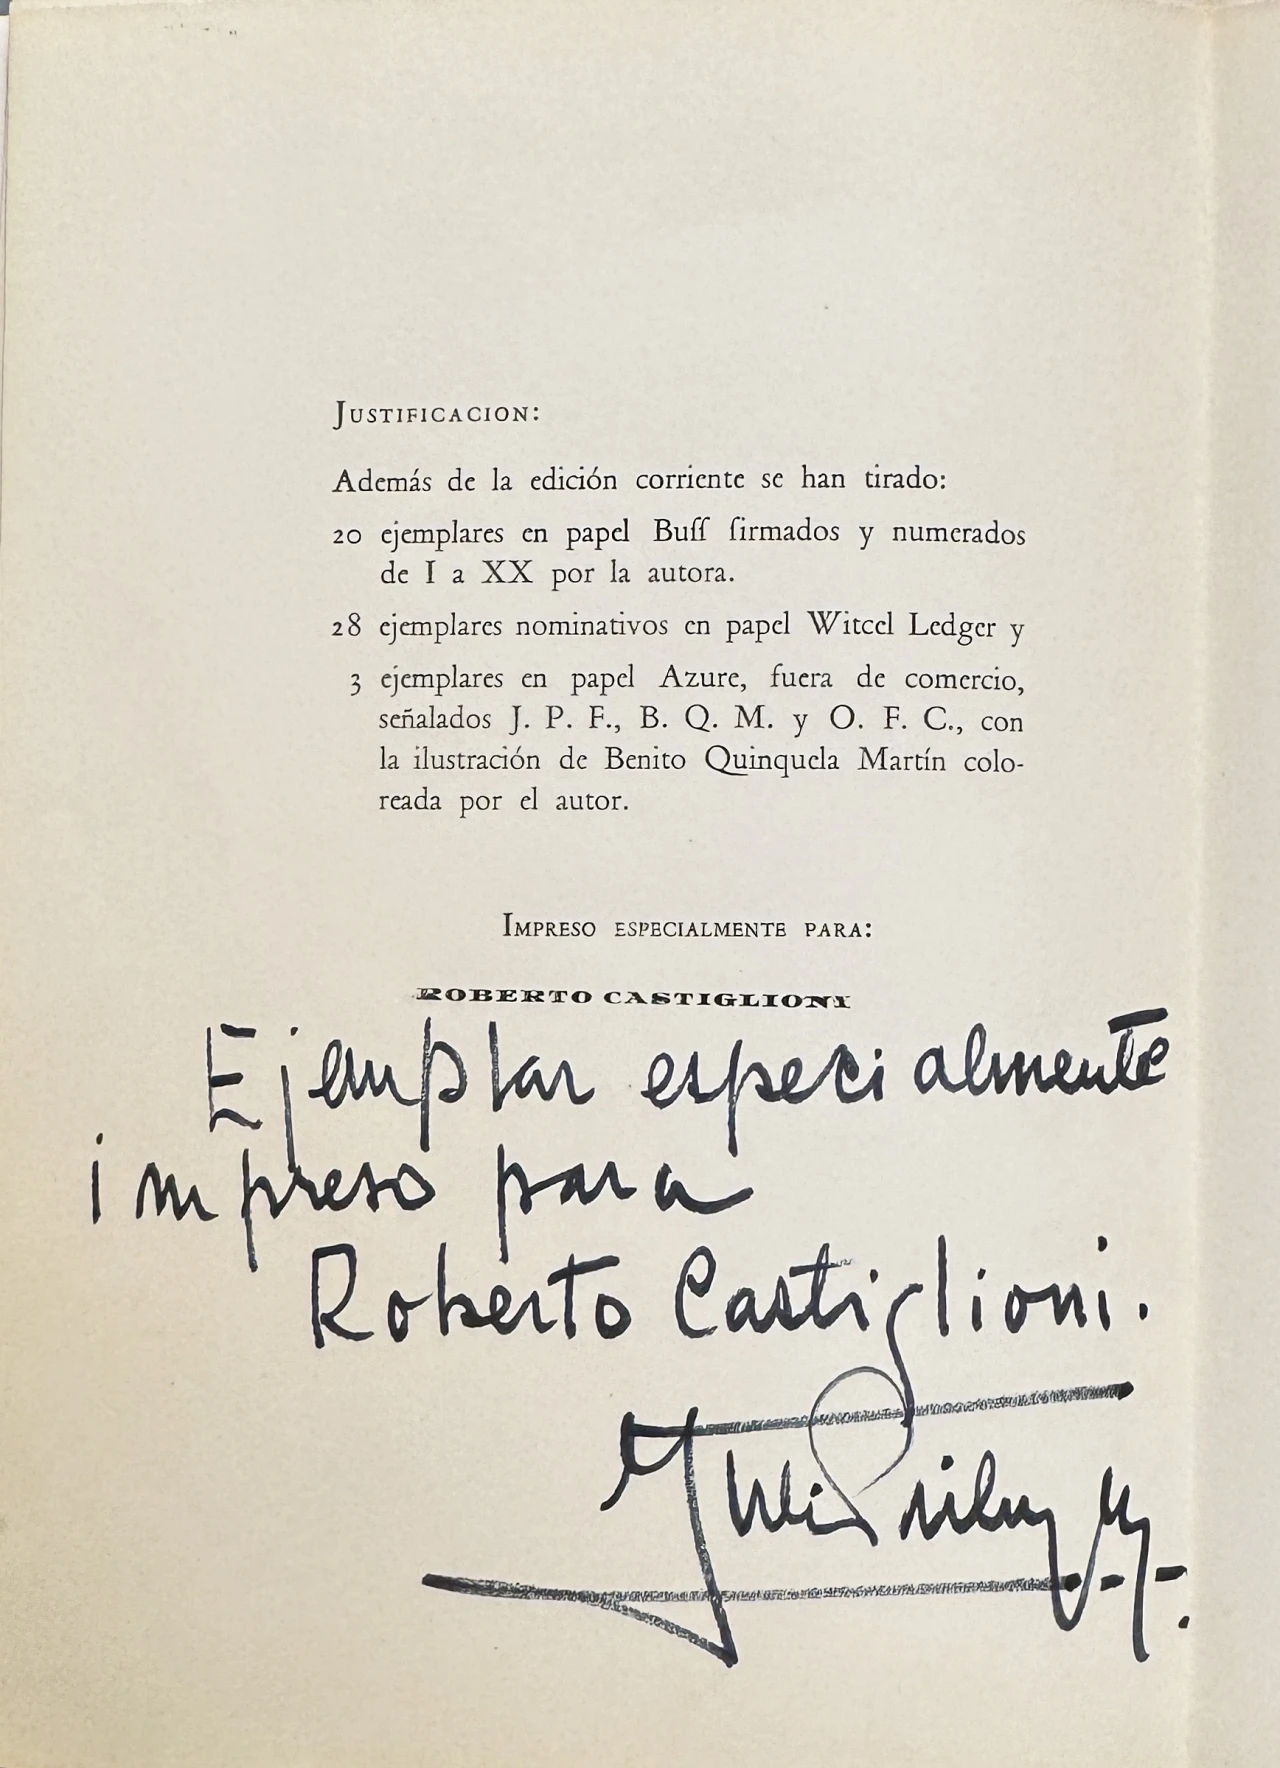 JUSTIFICACION:
Además de la edición corriente se han tirado:
20 ejemplares en papel Buff firmados y numerados
de I a XX por la autora.
28 ejemplares nominativos en papel Witcel Ledger y
3 ejemplares en papel Azure, fuera de comercio,
señalados J. P. F., B. Q. M. y O. F. C., con
la ilustración de Benito Quinquela Martín colo-
reada por el autor.
IMPRESO ESPECIALMENTE PARA:
ROBERTO CASTIGLIONI
Ejemplar especialmente
impreso para
Roberto Castiglioni.